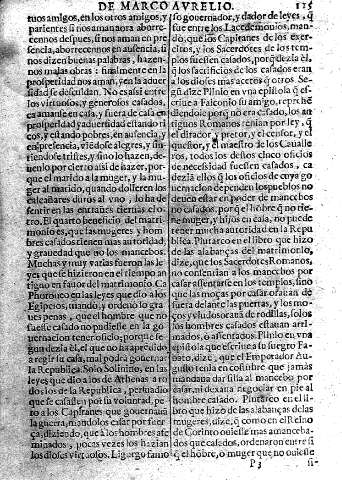 DE MARCO AVRELIO. 115
tuos amigos, en los otros amigos, y
parientes si nos aman aora aborre-
cennos despues, si nos aman en pre-
sencia, aborrecennos en ausencia, si
nos dizen buenas palabras, hazen-
nos malas obras: finalmente en la
prosperidad nos aman, y en la aduersi
dad se descuidan. No es assi entre
los virtuosos, y generosos casados,
ca amanse en casa, y fuera de casa en
prosperidad y aduersidad estando ri
cos, y estando pobres, en ausencia, y
en presencia, viẽdose alegres, y sin-
tiendose tristes, y si no lo hazen, de-
uenlo por cierto assi de hazer, por-
que el marido a la muger, y la mu-
ger al marido, quando dossieren los
calcañares duros al vno, ha de
sentir en las entrañas tiernas el o-
tro. El quarto beneficio del matri-
monio es, que las mugeres y hom-
bres casados tienen mas autoridad,
y grauedad que no los mancebos.
Muchas y muy varias fueron las le-
yes que se hizieron en el tiempo an
tigo en fauor del matrimonio. Ca
Phoroneo en las leyes que dio a los
Egipcios, mandò, y ordenò so gra
ues penas, que el hombre que no
fuesse casado no pudiesse en la go-
uernacion tener oficio, porque se-
gun dezia el, el que no ha aprendido
a regir su casa, mal podra gouernar
la Republica. Solo Solinino, en las
leyes que dio a los de Athenas a ro
dos los de la Republica, persuadio
que se casassen por su voluntad, pe-
ro a los Capitanes que gouernauã
la guerra, mandolos casar por fuer-
ça, diziendo, que a los hombres ato
minados, pocas vezes los hazian
los dioses virtuosos. Ligurgo famo
so gouernador, y dador de leyes, q̃
fue entre los Lacedemonios, man-
dò, que los Capitanes de los exer-
citos, y los Sacerdotes de los tem-
plos fuessen casados, porque dezia el, q̃
los sacrificios de los casados eran
a los dioses mas acetos q̃ otros. Se-
gũ dize Plinio en vna epistola q̃ es-
criue a Falconio su amigo, reprehẽ
diendole porq̃ no era casado, los an
tiguos Romanos tenian por ley, q̃
el dirador, y pretor, y el censor, y el
questor, y el maestro de los Cauallе
ros, todos los destos cinco oficios
de necesidad fuessen casados, ca
dezia el, q̃ los oficios de cuya go-
uernacion dependen los pueblos no
deuen estar en poder de mancebos
no casados, porq̃ el hõbre q̃ no tie-
ne muger, y hijos en casa, no puede
tener mucha autoridad en la Repu
blica. Plutarco en el libro que hizo
de las alabanças del matrimonio,
dize, que los Sacerdotes Romanos,
no consentian a los mancebos por
casar assentarse en los templos, sino
que las moças por casar orauan de
fuera delante las puertas, y los mo-
ços y viudos orauã de rodillas, solo
los hombres casados estauan arri-
mados, ò assentados. Plinio en vna
epistola que escriue a su suegro Fa-
bato, dize, que el Emperador Au-
gusto tenia en costumbre que jamas
mandaua dar silla al mancebo por
casar, ni dexaua negociar en pie al
hombre casado. Plutarco en el li-
bro que hizo de las alabanças de las
mugeres, dize, q̃ como en el Reino
de Corinto ouiesse mas mancebos
que casados, ordenaron entre si
q̃ el hõbre, o muger que no ouiesse
P 3 si-